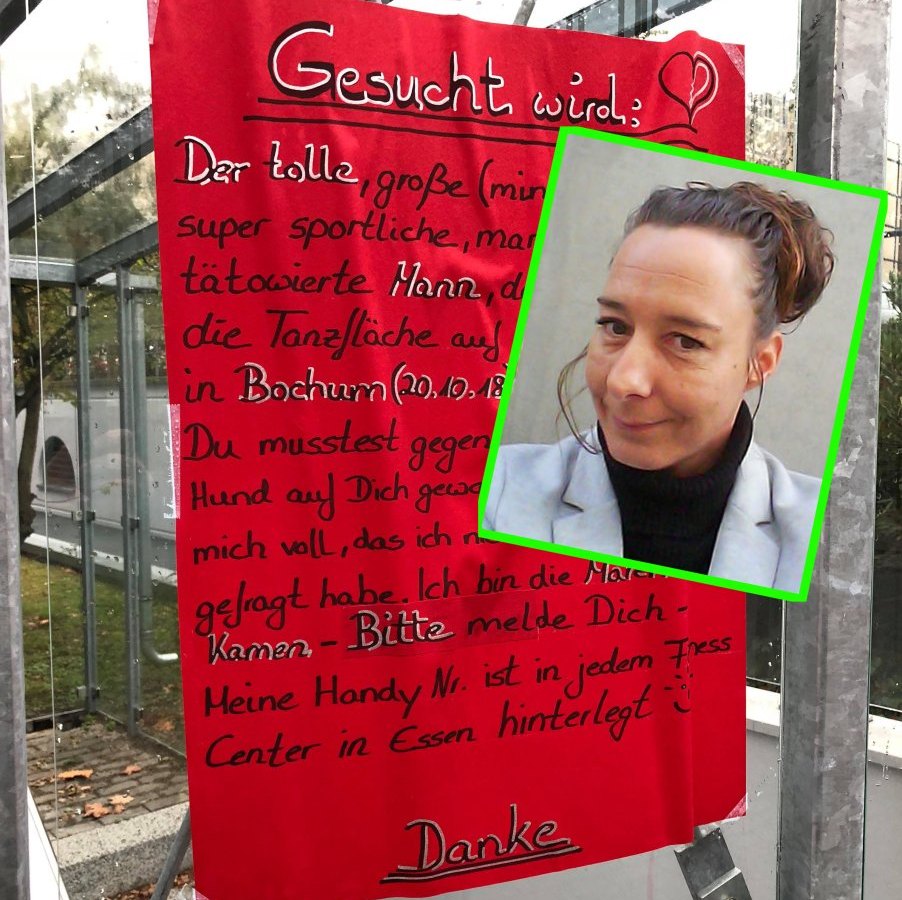 Gesucht wird:
Der tolle, große (min
super sportliche, mar
tätowierte Mann, d
die Tanzfläche auf
in Bochum (20.10.18
Du musstest gegen
Hund auf Dich gewa
mich voll, das ich n
gefragt habe. Ich bin die
Kamen - Bitte melde Dich -
Meine Handy Nr. ist in jedem
Center in Essen hinterlegt
Danke